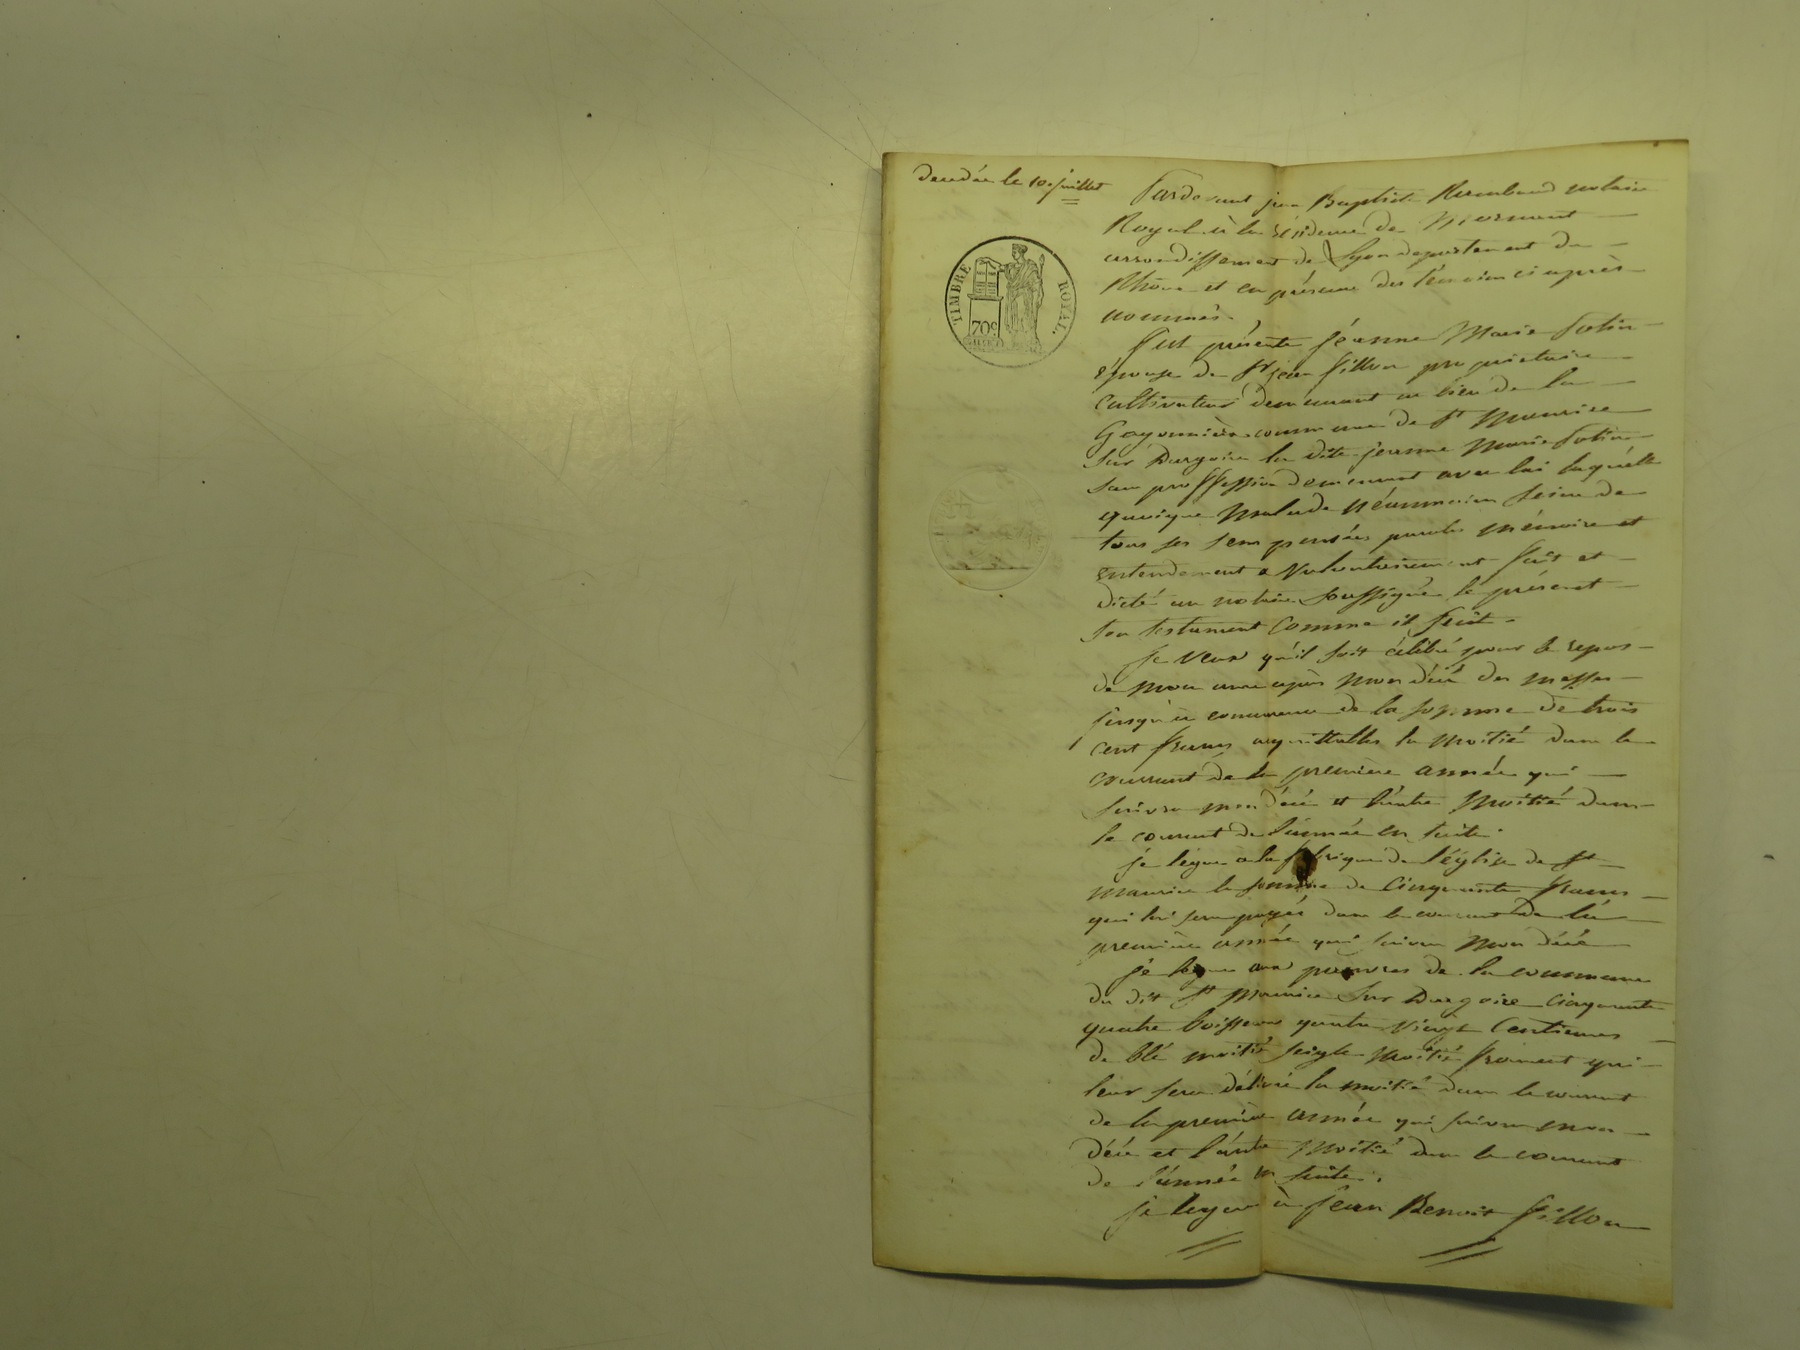 décédée le 10 juillet
TIMBRE ROYAL.
70c
Pardevant jean Baptiste notaire
Royal à la résidence de Mornant
arrondissement de Lyon departement du
Rhône et en présence des témoins ci après
nommés.
fut présente jéanne Marie
épouse de Sr jean fillon propriétaire
cultivateur demeurant au lieu de la
commune de St Maurice
sur Dargoire la dite jeanne Marie
sans proffession demeurant avec lui laquelle
quoique Malade néanmoins saine de
tous ses sens pensées parole mémoire et
entendement a Volontairement fait et
dicté au notaire soussigné le présent
son testament comme il suit.
je veux qu'il soit célébré pour le repos
de mon ame après mon décé des messes
jusqu'à concurrence de la somme de trois
cent francs acquittables la moitié dans le
courrant de la première année qui
suivra mon décé et l'autre moitié dans
le courant de l'année en suite.
je legue a la fabrique de l'église de St
Maurice la somme de cinquante francs
qui lui sera payés dans le courant de la
première année qui suivra mon décé
je legue aux pauvres de la commune
du dit St Maurice sur Dargoire cinquante
quatre boisseaux quatre vingt centiemes
de blé moitié seigle moitié froment qui
leur sera délivré la moitié dans le courant
de la première année qui suivra mon
décé et l'autre moitié dans le courant
de l'année en suite.
je legue à jean Benoit fillon